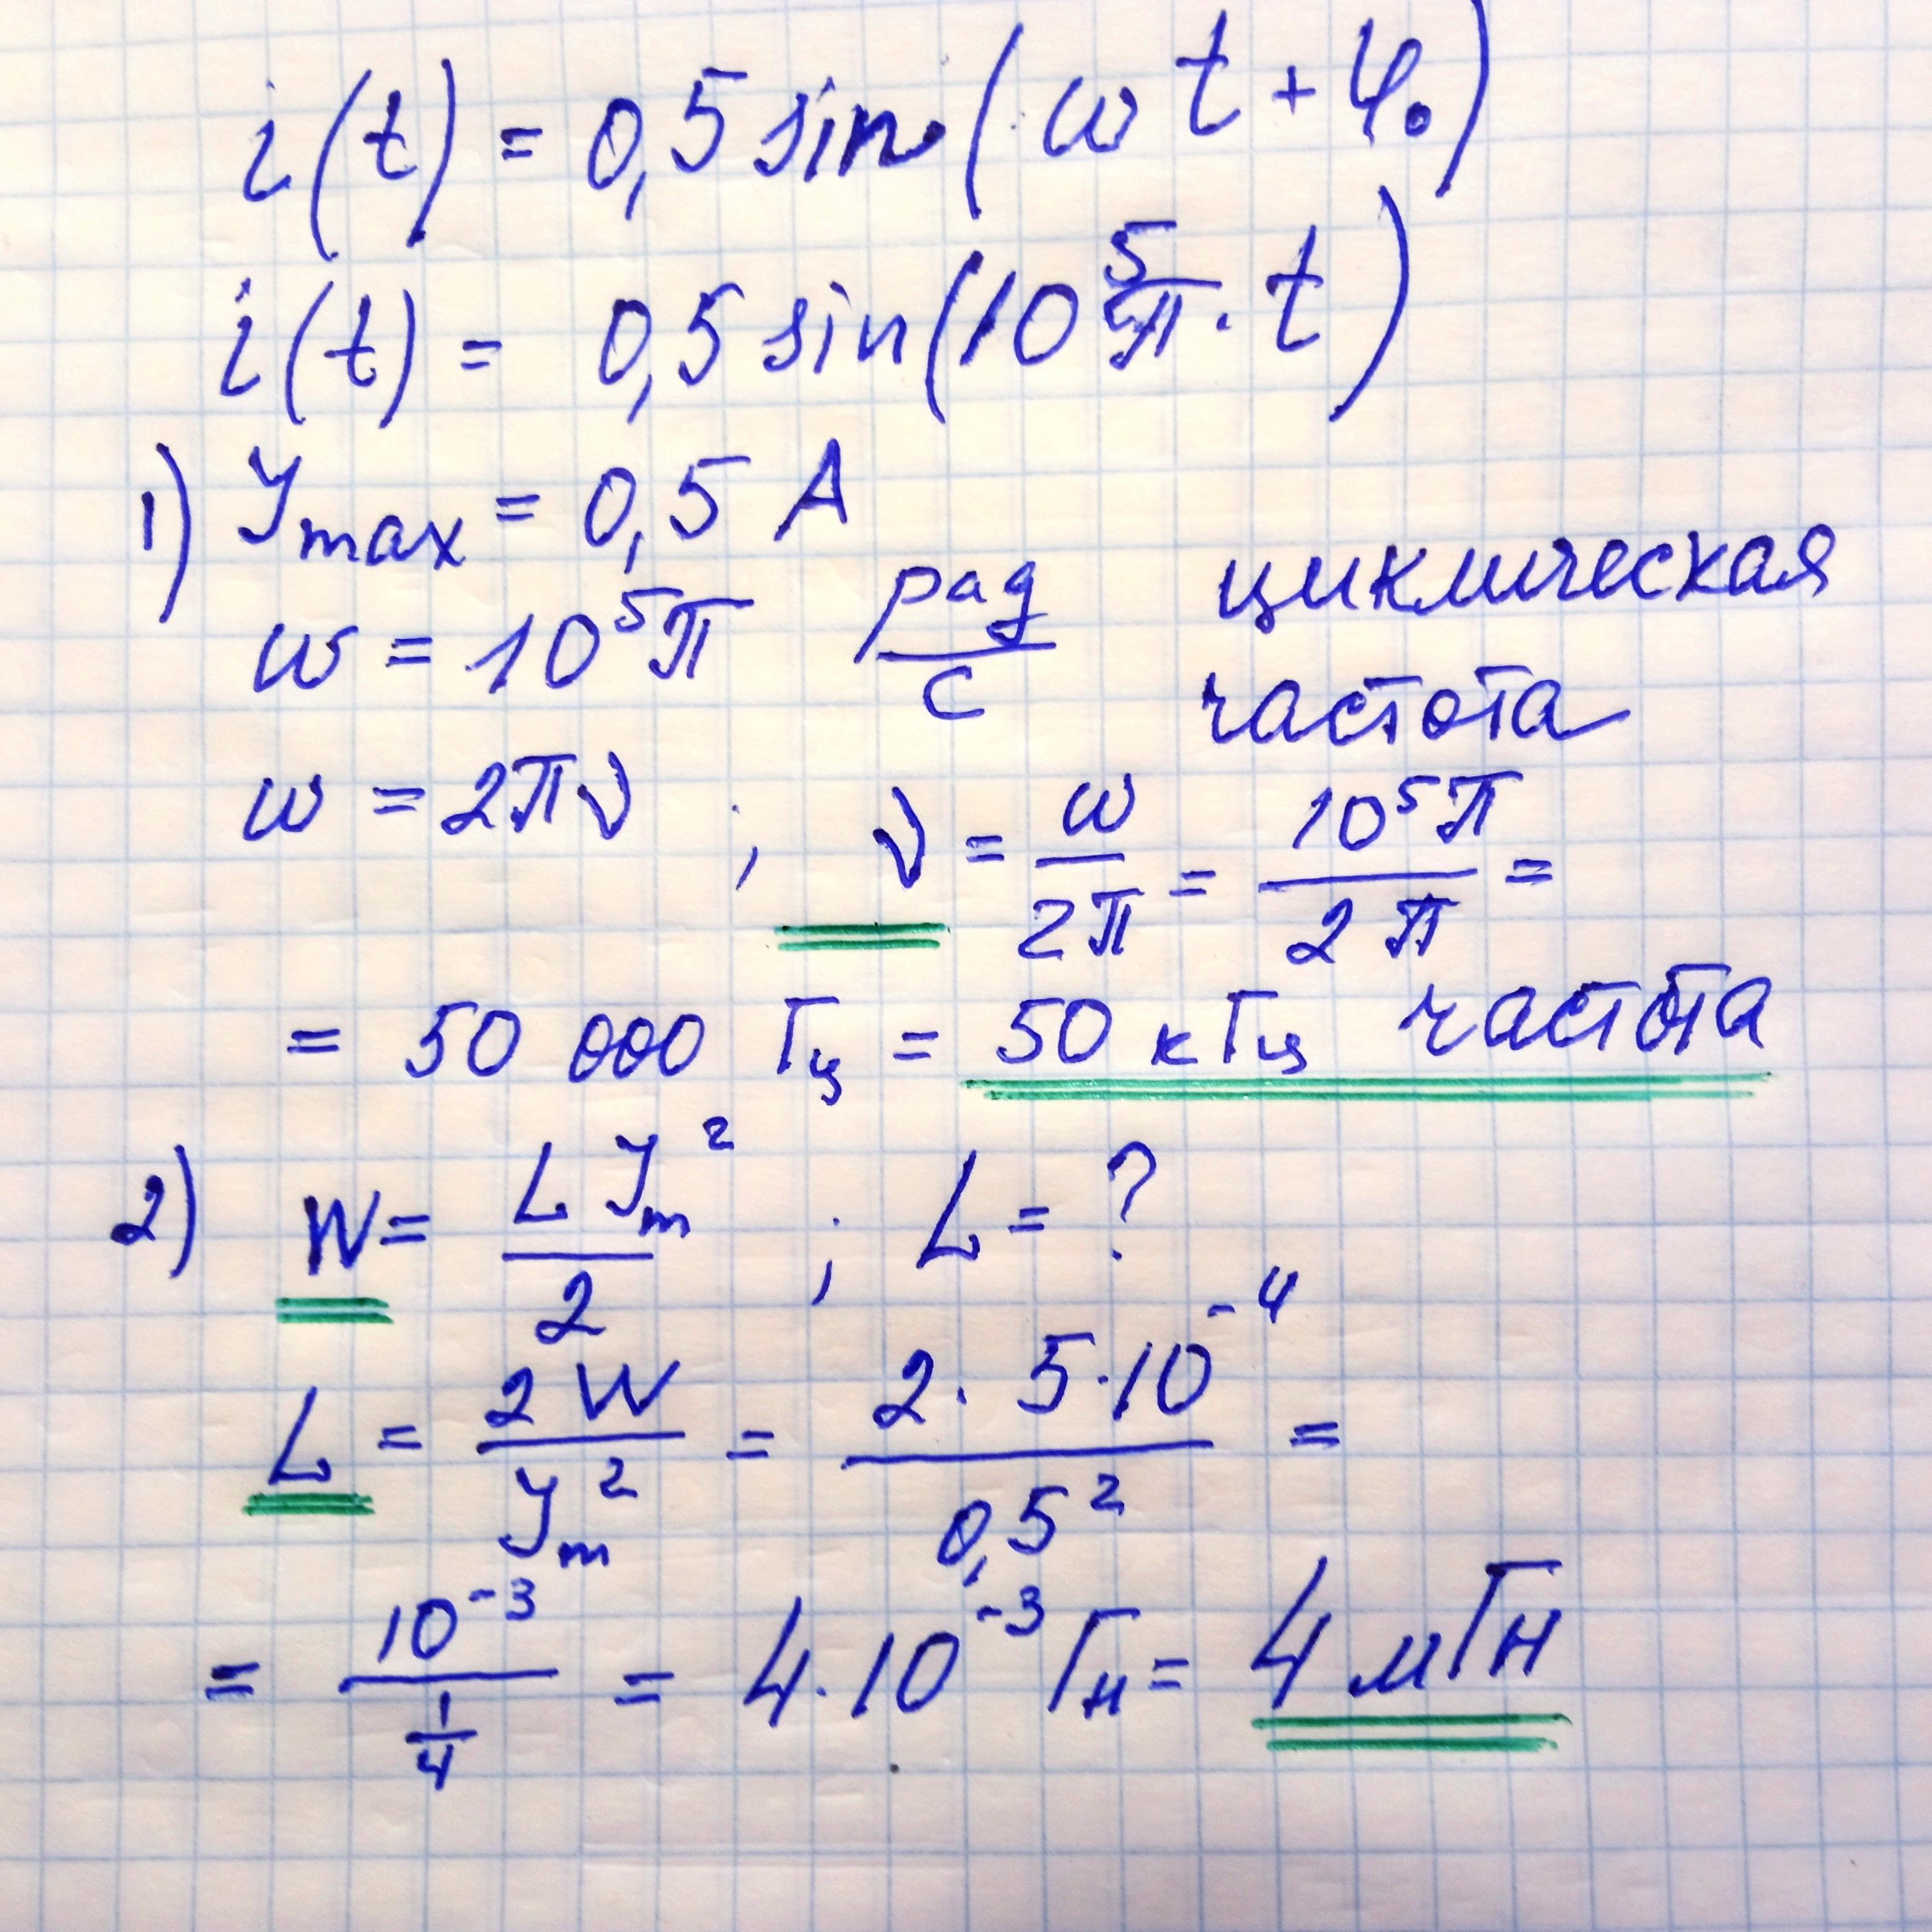 i(t) = 0,5 sin (ωt + φ₀)
i(t) = 0,5 sin(10⁵π · t)
1) Jmax = 0,5 A
ω = 10⁵π рад/с циклическая
частота
ω = 2πν ; ν = ω/2π = 10⁵π/2π =
= 50 000 Гц = 50 кГц частота
2) W = LJm²/2 ; L = ?
L = 2W/Jm² = 2·5·10⁻⁴/0,5² =
= 10⁻³/(1/4) = 4·10⁻³ Гн = 4 мГн